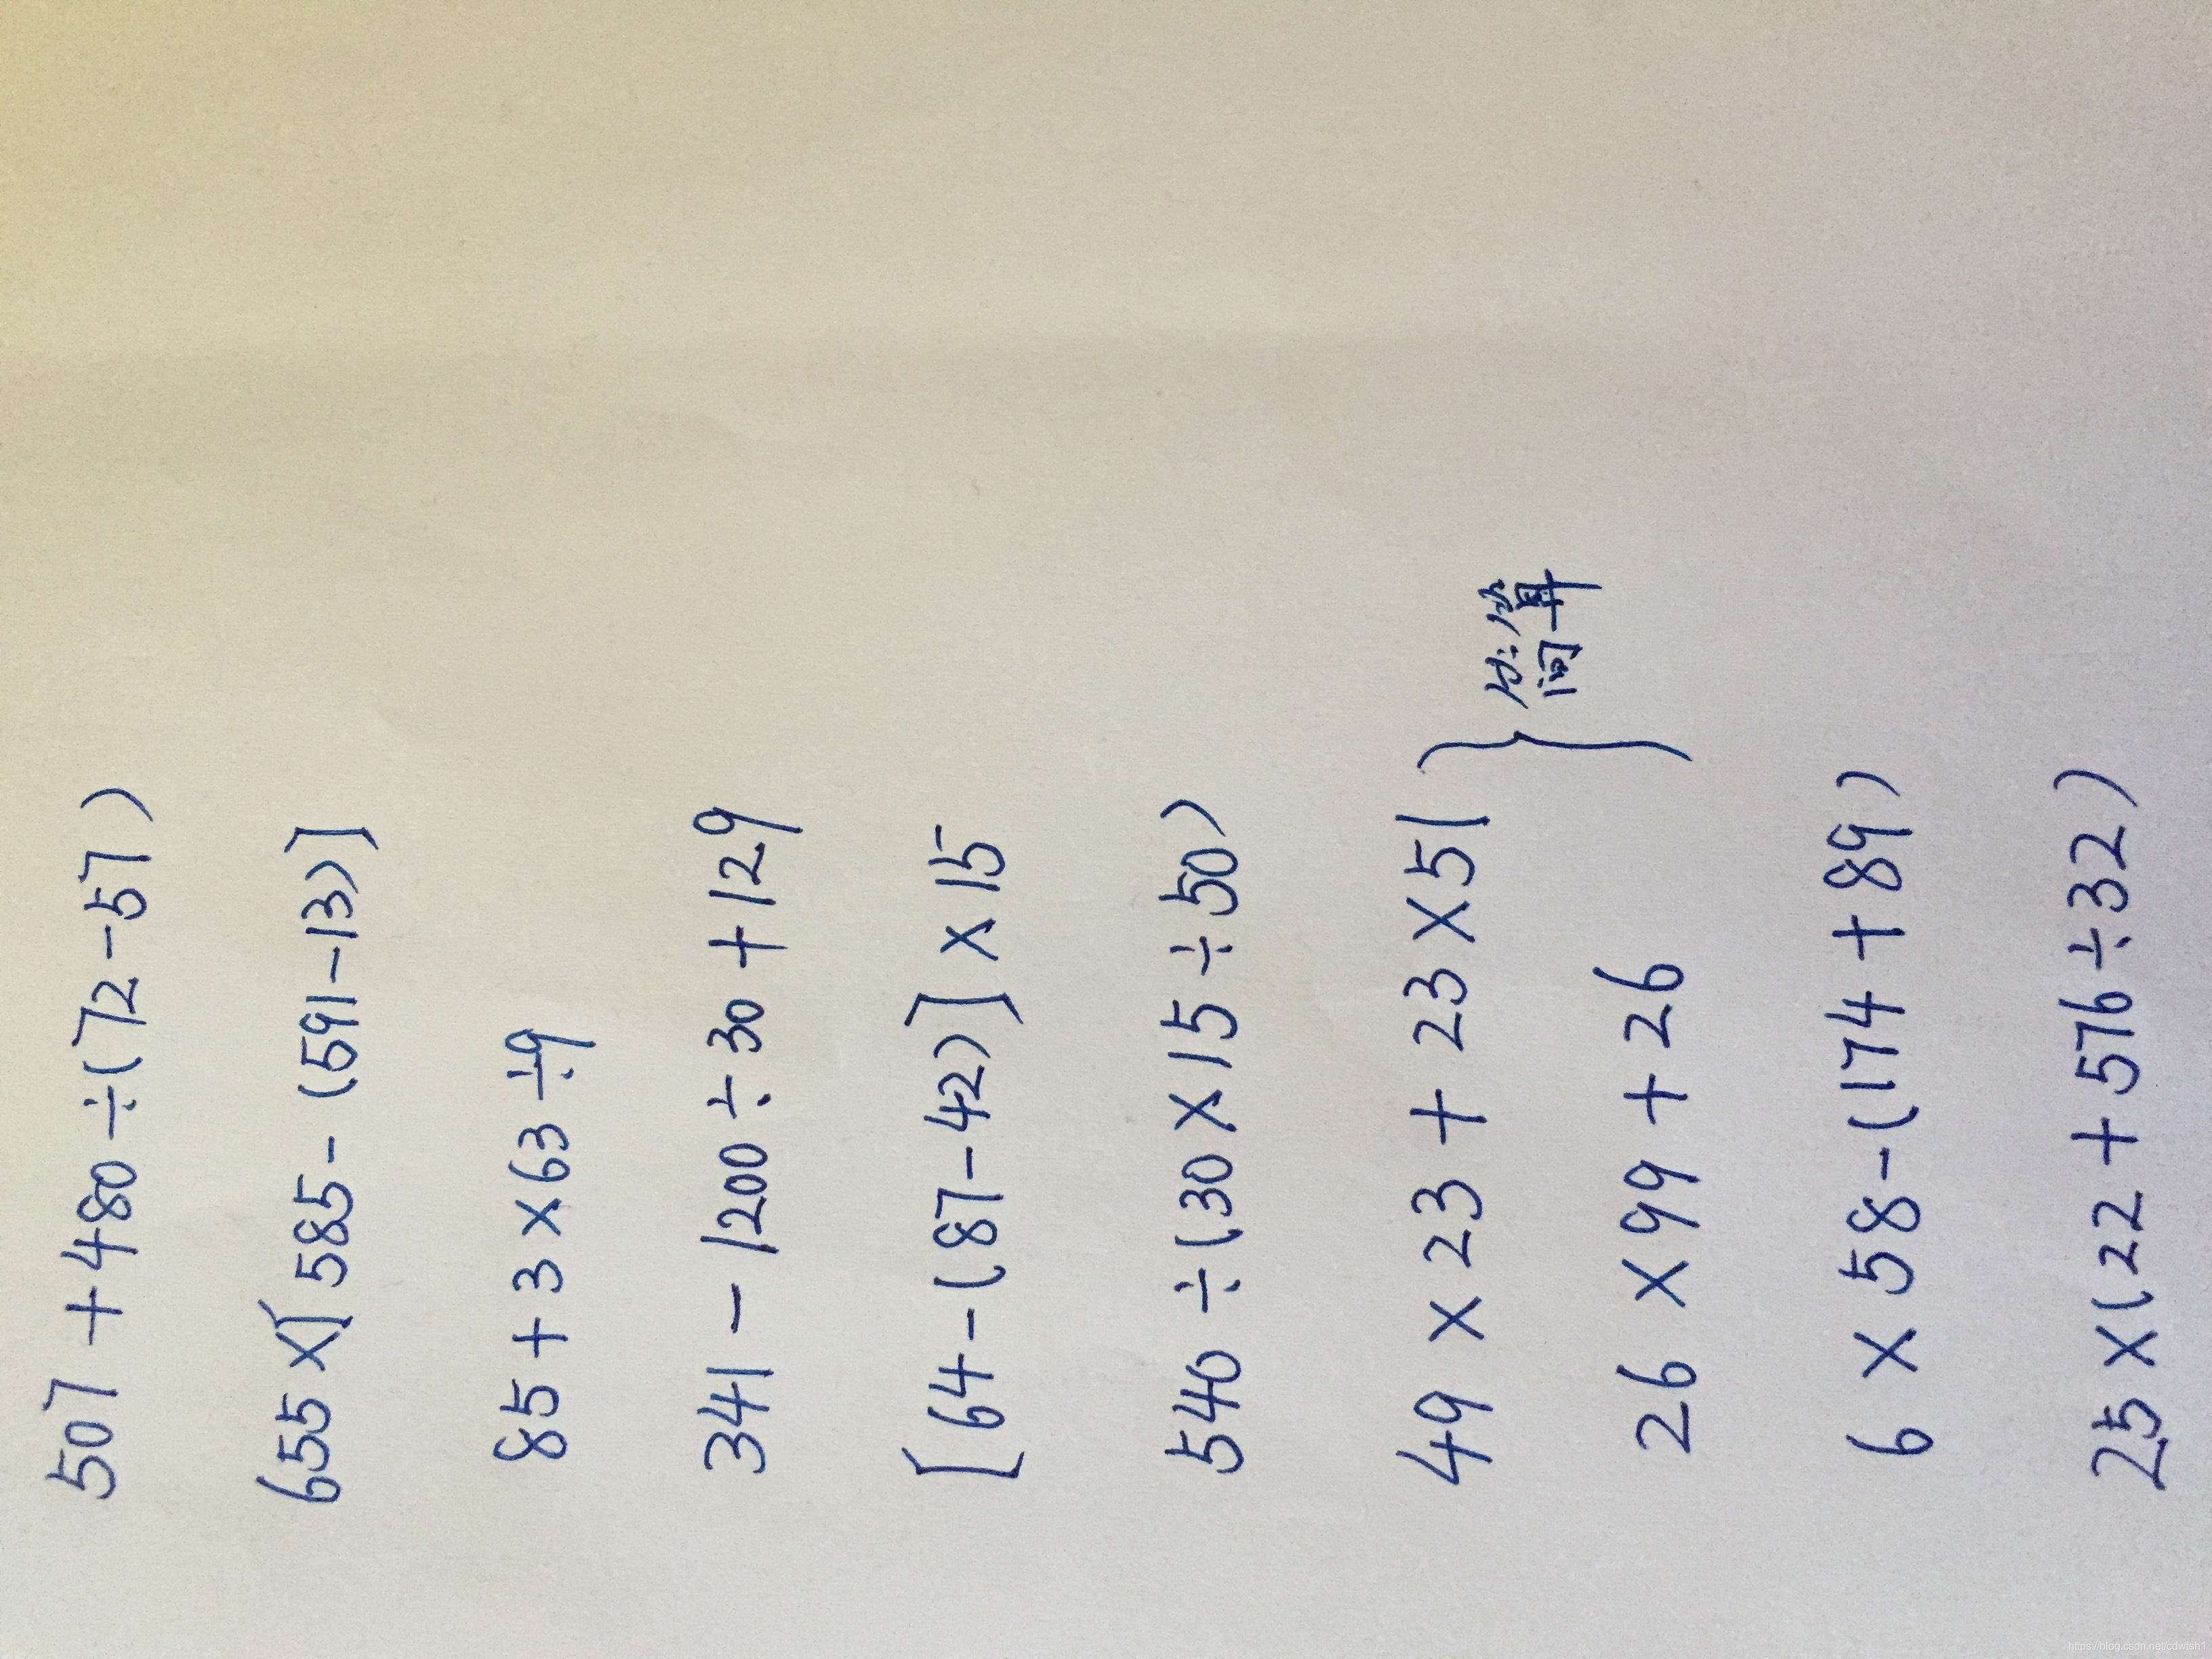 507+480÷(72-57)
655×[585-(591-13)]
85+3×63÷9
341-1200÷30+129
[64-(87-42)]×15
540÷(30×15÷50)
49×23+23×51
26×99+26
简算
6×58-(174+89)
25×(22+576÷32)
https://blog.csdn.net/cdwtsh1